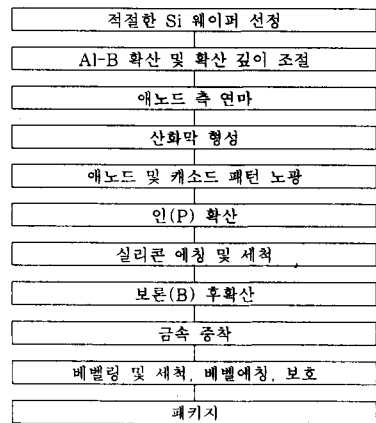 적절한 Si 웨이퍼 선정
Al-B 확산 및 확산 깊이 조절
애노드 측 연마
산화막 형성
애노드 및 캐소드 패턴 노광
인(P) 확산
실리콘 에칭 및 세척
보론(B) 후확산
금속 증착
베벨링 및 세척, 베벨에칭, 보호
패키지